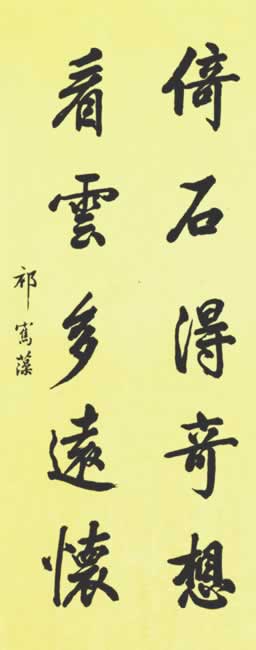 倚石得奇想
看雲多遠懷
祁寯藻